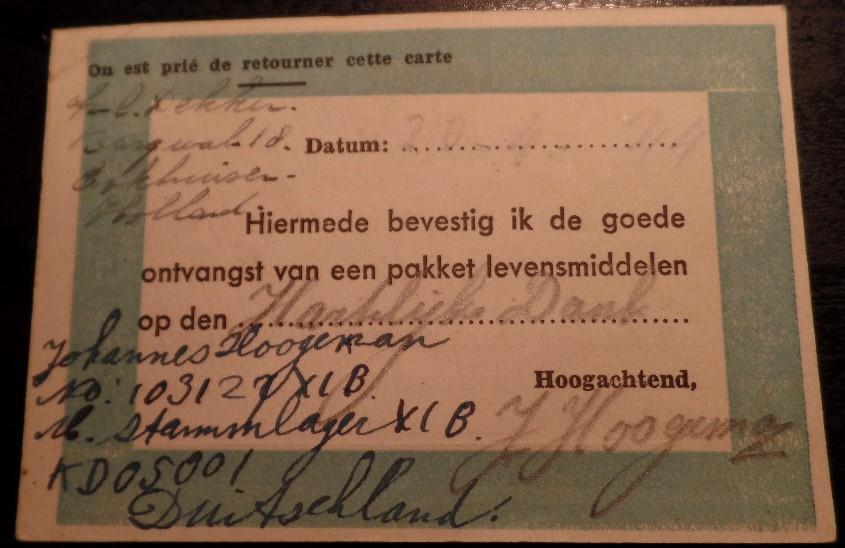 On est prié de retourner cette carte
Dekker.
18.
Datum: 20 4 44
Enkhuizen -
Holland
Hiermede bevestig ik de goede
ontvangst van een pakket levensmiddelen
op den Hartelijk Dank
Johannes Hoogeman
No: 103127 XI B.
M. Stammlager XI B.
Hoogachtend,
J Hoogema
KD05001
Duitschland.